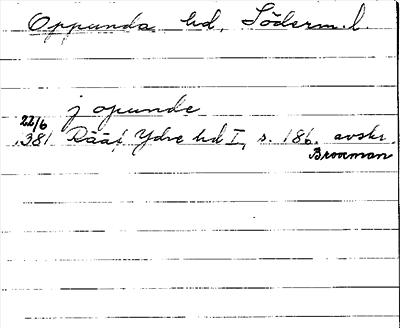 Oppunda hd, Söderm.l.
j opunde
22/6
1381 Rääf Ydre hd I, s. 186. avskr.
Broocman